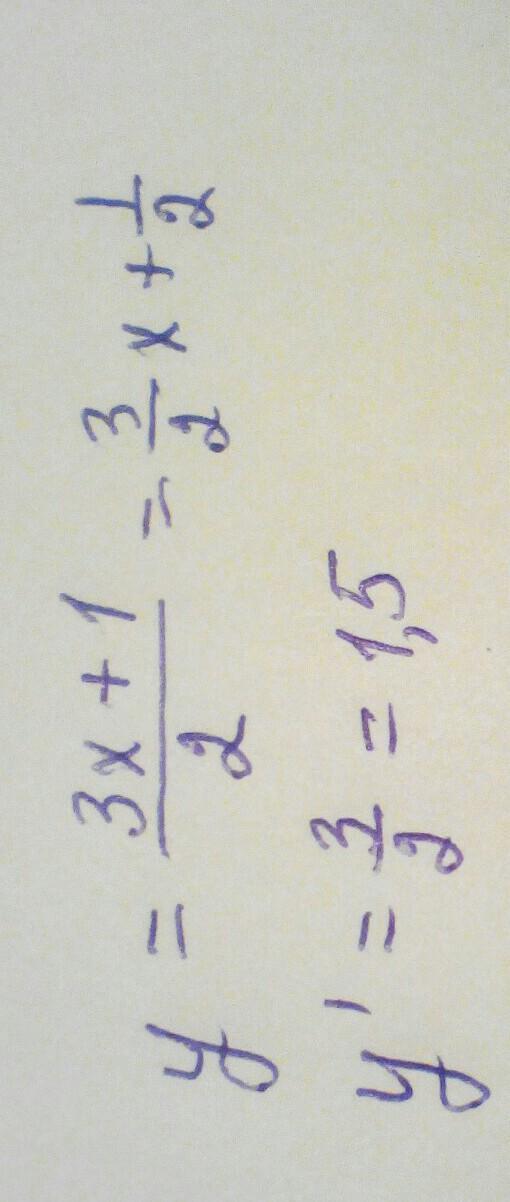 y = \frac{3x+1}{2} = \frac{3}{2}x + \frac{1}{2}
y' = \frac{3}{2} = 1,5